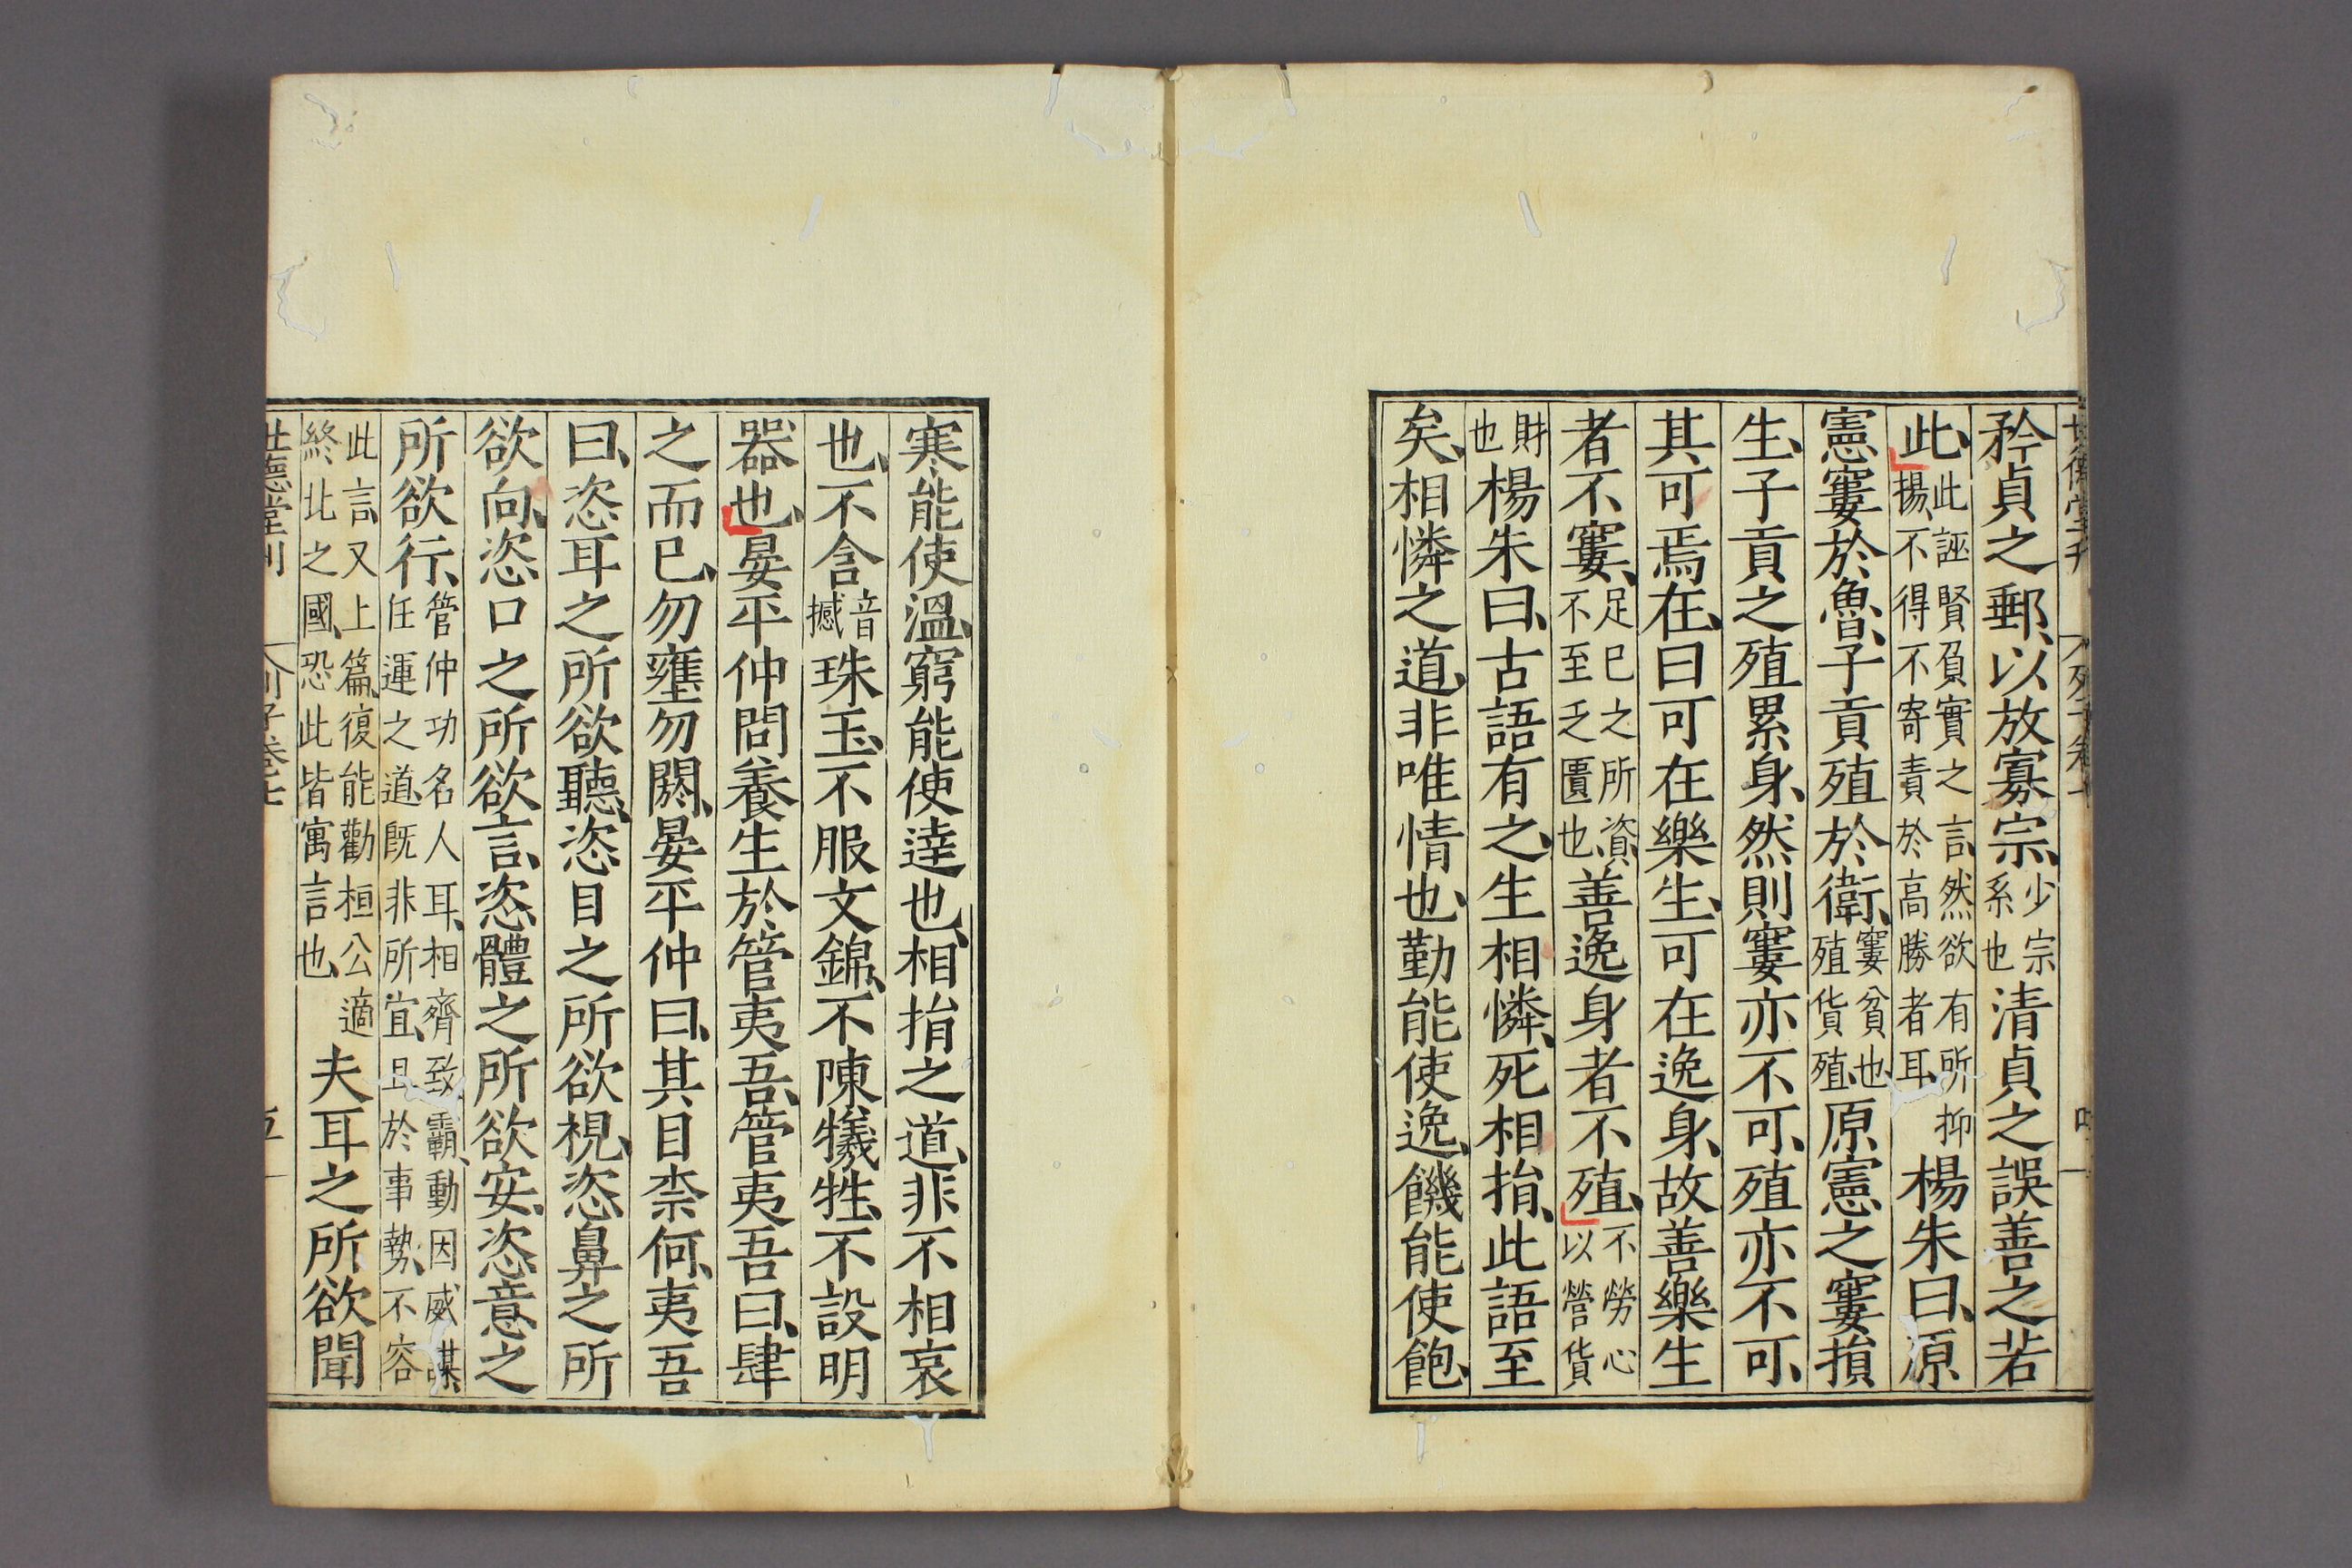 矜貞之郵、以放寡宗、少宗系也清貞之誤善之若
此、此誣賢負實之言、然欲有所抑揚、不得不寄責於高勝者耳、楊朱曰、原
憲窶於魯、子貢殖於衛、窶貧也殖貨殖原憲之窶損
生、子貢之殖累身、然則窶亦不可、殖亦不可、
其可焉在、曰可在樂生、可在逸身、故善樂生
者不窶、足已之所資、不至乏匱也善逸身者不殖、不勞心以營貨
財也楊朱曰、古語有之、生相憐、死相捐、此語至
矣、相憐之道、非唯情也、勤能使逸、饑能使飽、
寒能使溫、窮能使達也、相捐之道、非不相哀
也、不含音撼珠玉、不服文錦、不陳犧牲、不設明
器也、晏平仲問養生於管夷吾、管夷吾曰、肆
之而已、勿壅勿閼、晏平仲曰、其目柰何、夷吾
曰、恣耳之所欲聽、恣目之所欲視、恣鼻之所
欲向、恣口之所欲言、恣體之所欲安、恣意之
所欲行、管仲功名人耳、相齊致霸、動因威謀、任運之道、既非所宜、且於事勢、不容
此言、又上篇、復能勸桓公適終北之國、恐此皆寓言也、夫耳之所欲聞
世德堂刊